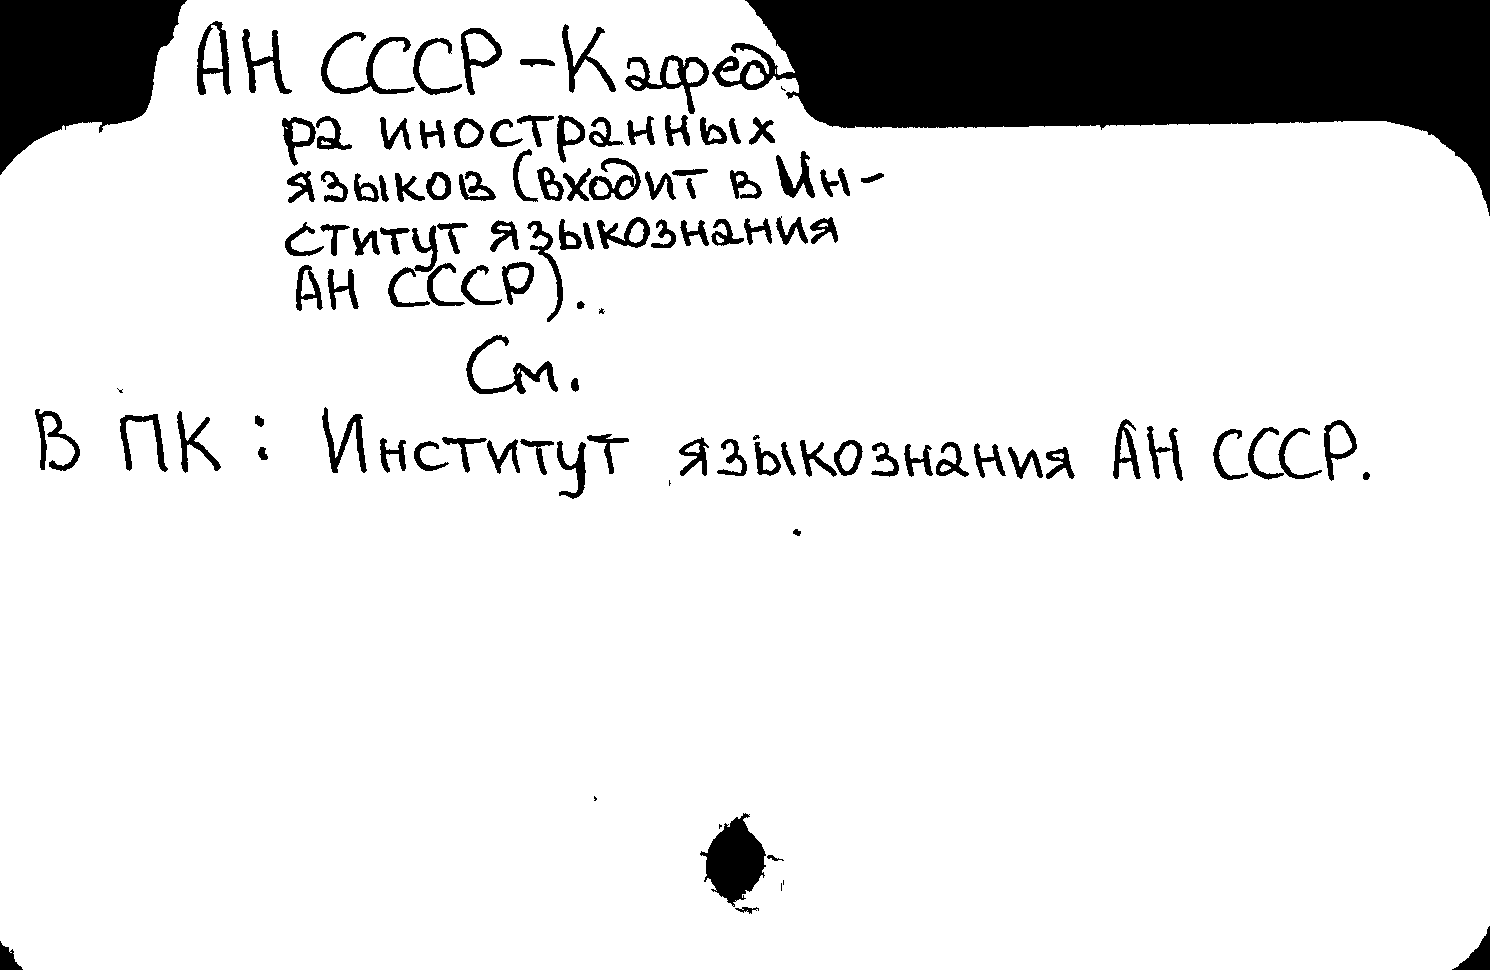 АН СССР - Кафед-
ра иностранных
языков (входит в Ин-
ститут языкознания
АН СССР).
См.
В ПК: Институт языкознания АН СССР.